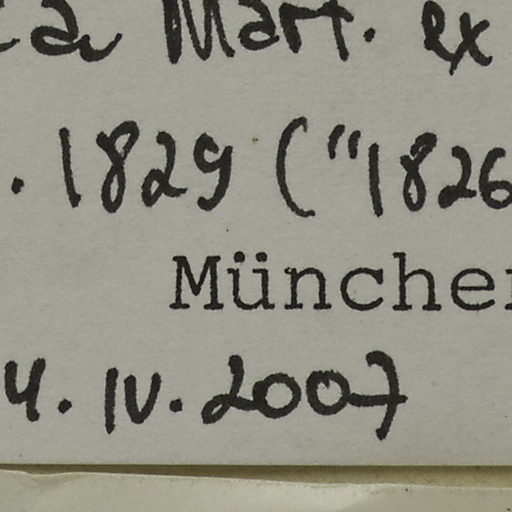 ca Mart. ex
. 1829 ("1826
Münche
4. IV. 2007